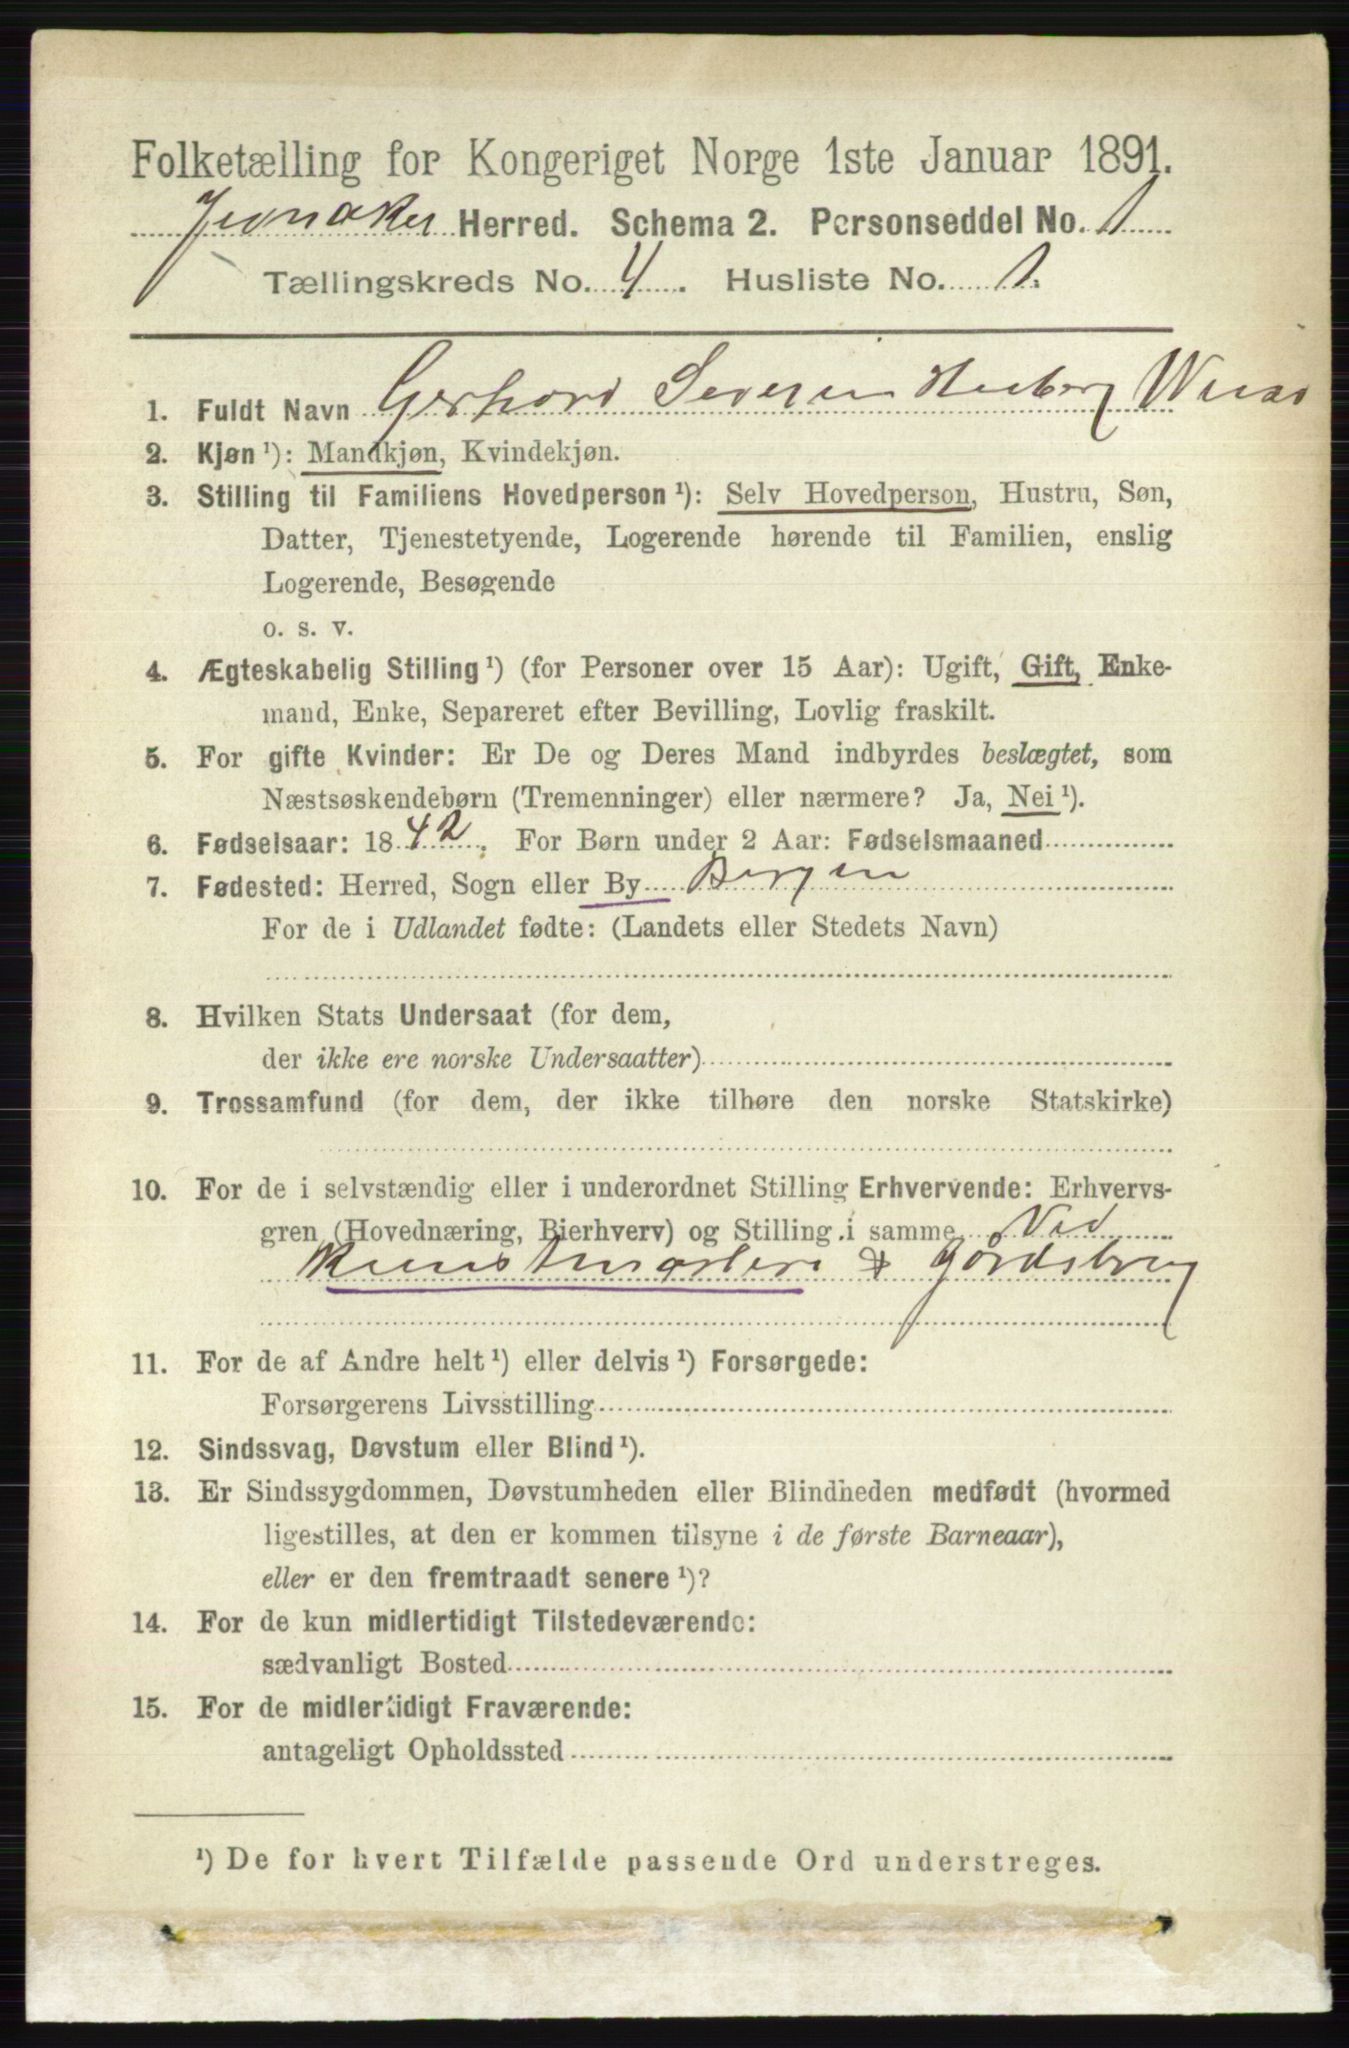 Folketælling for Kongeriget Norge 1ste Januar 1891.
Jevnaker Herred. Schema 2. Personseddel No. 1
Tællingskreds No. 4. Husliste No. 1.
1. Fuldt Navn Gerhard Severin Heiberg
2. Kjøn ¹): Mandkjøn, Kvindekjøn.
3. Stilling til Familiens Hovedperson ¹): Selv Hovedperson, Hustru, Søn,
Datter, Tjenestetyende, Logerende hørende til Familien, enslig
Logerende, Besøgende
o. s. v.
4. Ægteskabelig Stilling ¹) (for Personer over 15 Aar): Ugift, Gift, Enke-
mand, Enke, Separeret efter Bevilling, Lovlig fraskilt.
5. For gifte Kvinder: Er De og Deres Mand indbyrdes beslægtet, som
Næstsøskendebørn (Tremenninger) eller nærmere? Ja, Nei ¹).
6. Fødselsaar: 1842. For Børn under 2 Aar: Fødselsmaaned
7. Fødested: Herred, Sogn eller By Bergen
For de i Udlandet fødte: (Landets eller Stedets Navn)
8. Hvilken Stats Undersaat (for dem,
der ikke ere norske Undersaatter)
9. Trossamfund (for dem, der ikke tilhøre den norske Statskirke)
10. For de i selvstændig eller i underordnet Stilling Erhvervende: Erhvervs-
gren (Hovednæring, Bierhverv) og Stilling i samme Ved
& Gårdsbrug
11. For de af Andre helt ¹) eller delvis ¹) Forsørgede:
Forsørgerens Livsstilling
12. Sindssvag, Døvstum eller Blind ¹).
13. Er Sindssygdommen, Døvstumheden eller Blindheden medfødt (hvormed
ligestilles, at den er kommen tilsyne i de første Barneaar),
eller er den fremtraadt senere ¹)?
14. For de kun midlertidigt Tilstedeværende:
sædvanligt Bosted
15. For de midlertidigt Fraværende:
antageligt Opholdssted
¹) De for hvert Tilfælde passende Ord understreges.